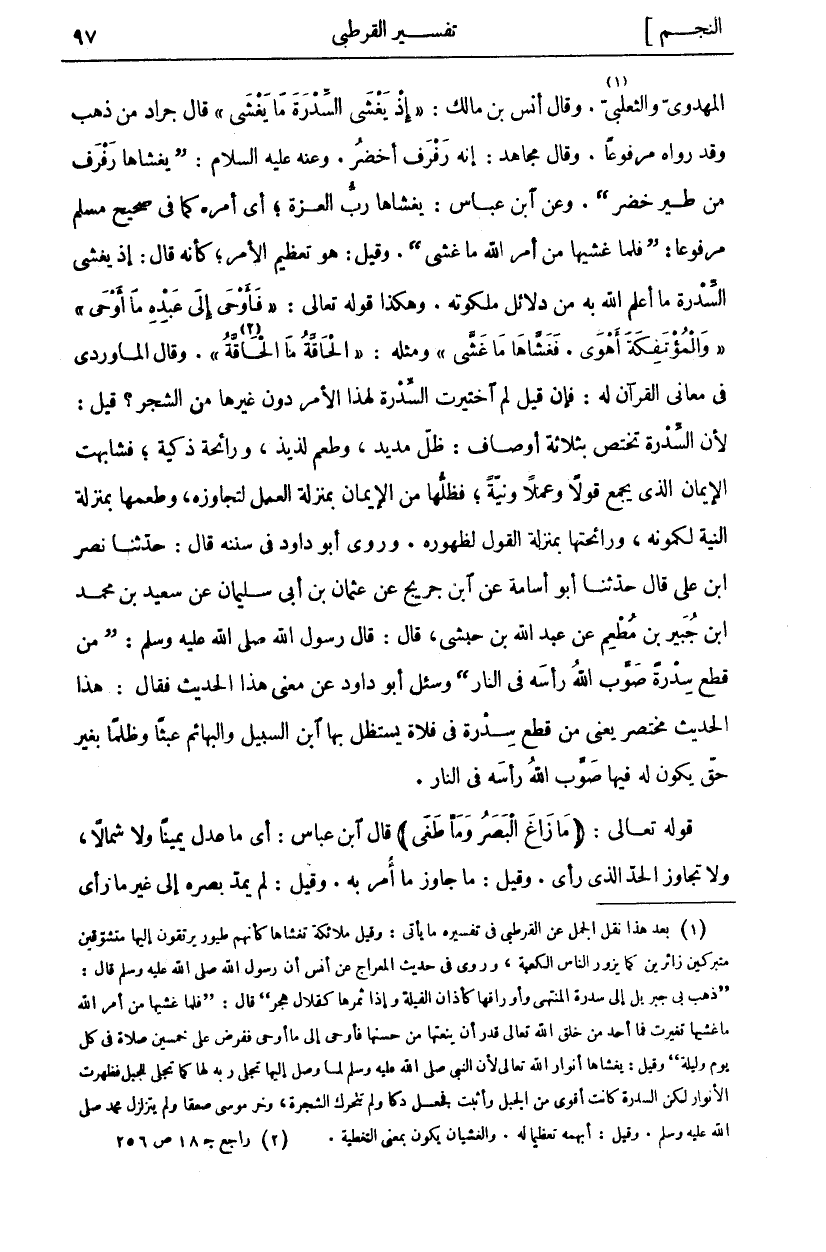 النجــم] تفســـير القرطبى ٩٧
المهدوىّ والثعلبىّ(١) . وقال أنس بن مالك : « إِذْ يَغْشَى السِّدْرَةَ مَا يَغْشَى » قال جراد من ذهب
وقد رواه مرفوعًا . وقال مجاهد : إنه رَفْرَف أخضرُ . وعنه عليه السلام : ” يغشاها رَفْرَف
من طــير خضر “ . وعن آبن عبـاس : يغشاها ربُّ العـزة ؛ أى أمره كما فى صحيح مسلم
مرفوعا : ” فلما غشيها من أمر الله ما غشى “ . وقيل : هو تعظيم الأمر ؛ كأنه قال : إذ يغشى
السِّدْرة ما أعلم الله به من دلائل ملكوته . وهكذا قوله تعالى : « فَأَوْحَى إِلَى عَبْدِهِ مَا أَوْحَى »
« وَالْمُؤْتَفِكَةَ أَهْوَى . فَغَشَّاهَا مَا غَشَّى » ومثله : « الْحَاقَّةُ مَا الْحَاقَّةُ(٢) » . وقال المـاوردى
فى معانى القرآن له : فإن قيل لم آختيرت السِّدْرة لهذا الأمر دون غيرها من الشجر ؟ قيل :
لأن السِّدْرة تختص بثلاثة أوصـاف : ظلّ مديد ، وطعم لذيذ ، ورائحة ذكية ؛ فشابهت
الإيمان الذى يجمع قولًا وعملًا ونيّةً ؛ فظلُّها من الإيمان بمنزلة العمل لتجاوزه، وطعمها بمنزلة
النية لكمونه ، ورائحتها بمنزلة القول لظهوره . وروى أبو داود فى سننه قال : حدّثنـا نصر
ابن على قال حدّثنـا أبو أسامة عن آبن جريج عن عثمان بن أبى سلـيمان عن سعيد بن محمـد
ابن جُبَير بن مُطْعِم عن عبد الله بن حبشى، قال : قال رسول الله صلى الله عليه وسلم : ” من
قطع سِدْرةً صَوَّب اللهُ رأسَه فى النار “ وسئل أبو داود عن معنى هذا الحديث فقال : هذا
الحديث مختصر يعنى من قطع سِــدْرة فى فلاة يستظل بها آبن السبيل والبهائم عبثًا وظلمًا بغير
حقّ يكون له فيها صَوَّب اللهُ رأسَه فى النار .
قوله تعــالى : ﴿ مَا زَاغَ الْبَصَرُ وَمَا طَغَى ﴾ قال آبن عباس : أى ما عدل يمينًا ولا شمالًا ،
ولا تجاوز الحدّ الذى رأى . وقيل : ما جاوز ما أُمر به . وقيل : لم يمدّ بصره إلى غير ما رأى
(١) بعد هذا نقل الجمل عن القرطبى فى تفسيره ما يأتى : وقيل ملائكة تغشاها كأنهم طيور يرتقون إليها متشوّقين
متبركين زائرين كما يزور الناس الكعبة ، وروى فى حديث المعراج عن أنس أن رسول الله صلى الله عليه وسلم قال :
” ذهب بى جبريل إلى سدرة المنتهى وأوراقها كآذان الفيلة وإذا ثمرها كقلال هجر “ قال : ” فلما غشيها من أمر الله
ما غشيها تغيرت فما أحد من خلق الله تعالى قدر أن ينعتها من حسنها فأوحى إلى ما أوحى ففرض على خمسين صلاة فى كل
يوم وليلة “ وقيل : يغشاها أنوار الله تعالى لأن النبي صلى الله عليه وسلم لمـا وصل إليها تجلى ربه لها كما تجلى للجبل فظهرت
الأنوار لكن السدرة كانت أقوى من الجبل وأثبت فجعـل دكا ولم تتحرك الشجرة ، وخر موسى صعقا ولم يتزلزل محمد صلى
الله عليه وسلم . وقيل : أبهمه تعظيما له . والغشيان يكون بمعنى التغطية . (٢) راجع ج ١٨ ص ٢٥٦